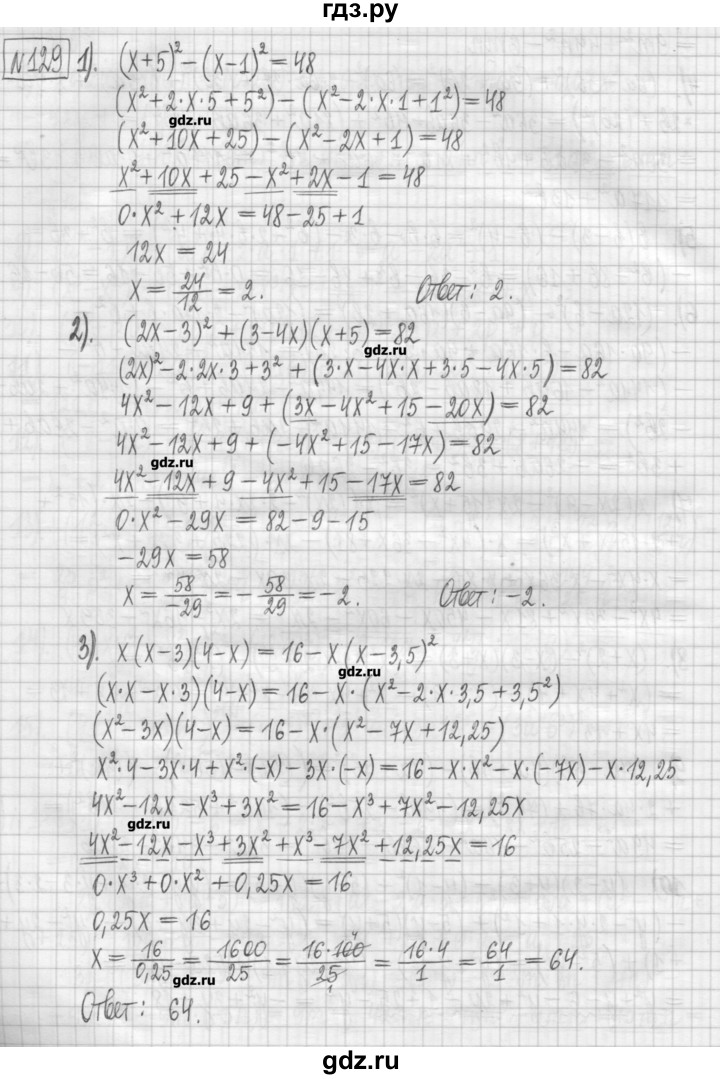 гдз.ру
№129 1). (x+5)² – (x–1)² = 48
(x²+2·x·5+5²) – (x²–2·x·1+1²) = 48
gdz.ru
(x²+10x+25) – (x²–2x+1) = 48
x²+10x+25–x²+2x–1 = 48
0·x²+12x = 48–25+1
12x = 24
x = 24/12 = 2. Ответ: 2.
2). (2x–3)² + (3–4x)(x+5) = 82
gdz.ru
(2x)²–2·2x·3+3² + (3·x–4x·x+3·5–4x·5) = 82
4x²–12x+9+(3x–4x²+15–20x) = 82
4x²–12x+9+(–4x²+15–17x) = 82
gdz.ru
4x²–12x+9–4x²+15–17x = 82
0·x²–29x = 82–9–15
–29x = 58
x = 58/–29 = –58/29 = –2. Ответ: –2.
3). x(x–3)(4–x) = 16–x(x–3,5)²
gdz.ru
(x·x–x·3)(4–x) = 16–x·(x²–2·x·3,5+3,5²)
(x²–3x)(4–x) = 16–x·(x²–7x+12,25)
x²·4–3x·4+x²·(–x)–3x·(–x) = 16–x·x²–x·(–7x)–x·12,25
4x²–12x–x³+3x² = 16–x³+7x²–12,25x
gdz.ru
4x²–12x–x³+3x²+x³–7x²+12,25x = 16
0·x³+0·x²+0,25x = 16
0,25x = 16
x = 16/0,25 = 1600/25 = 16·100/25 = 16·4/1 = 64/1 = 64.
gdz.ru
Ответ: 64.
gdz.ru